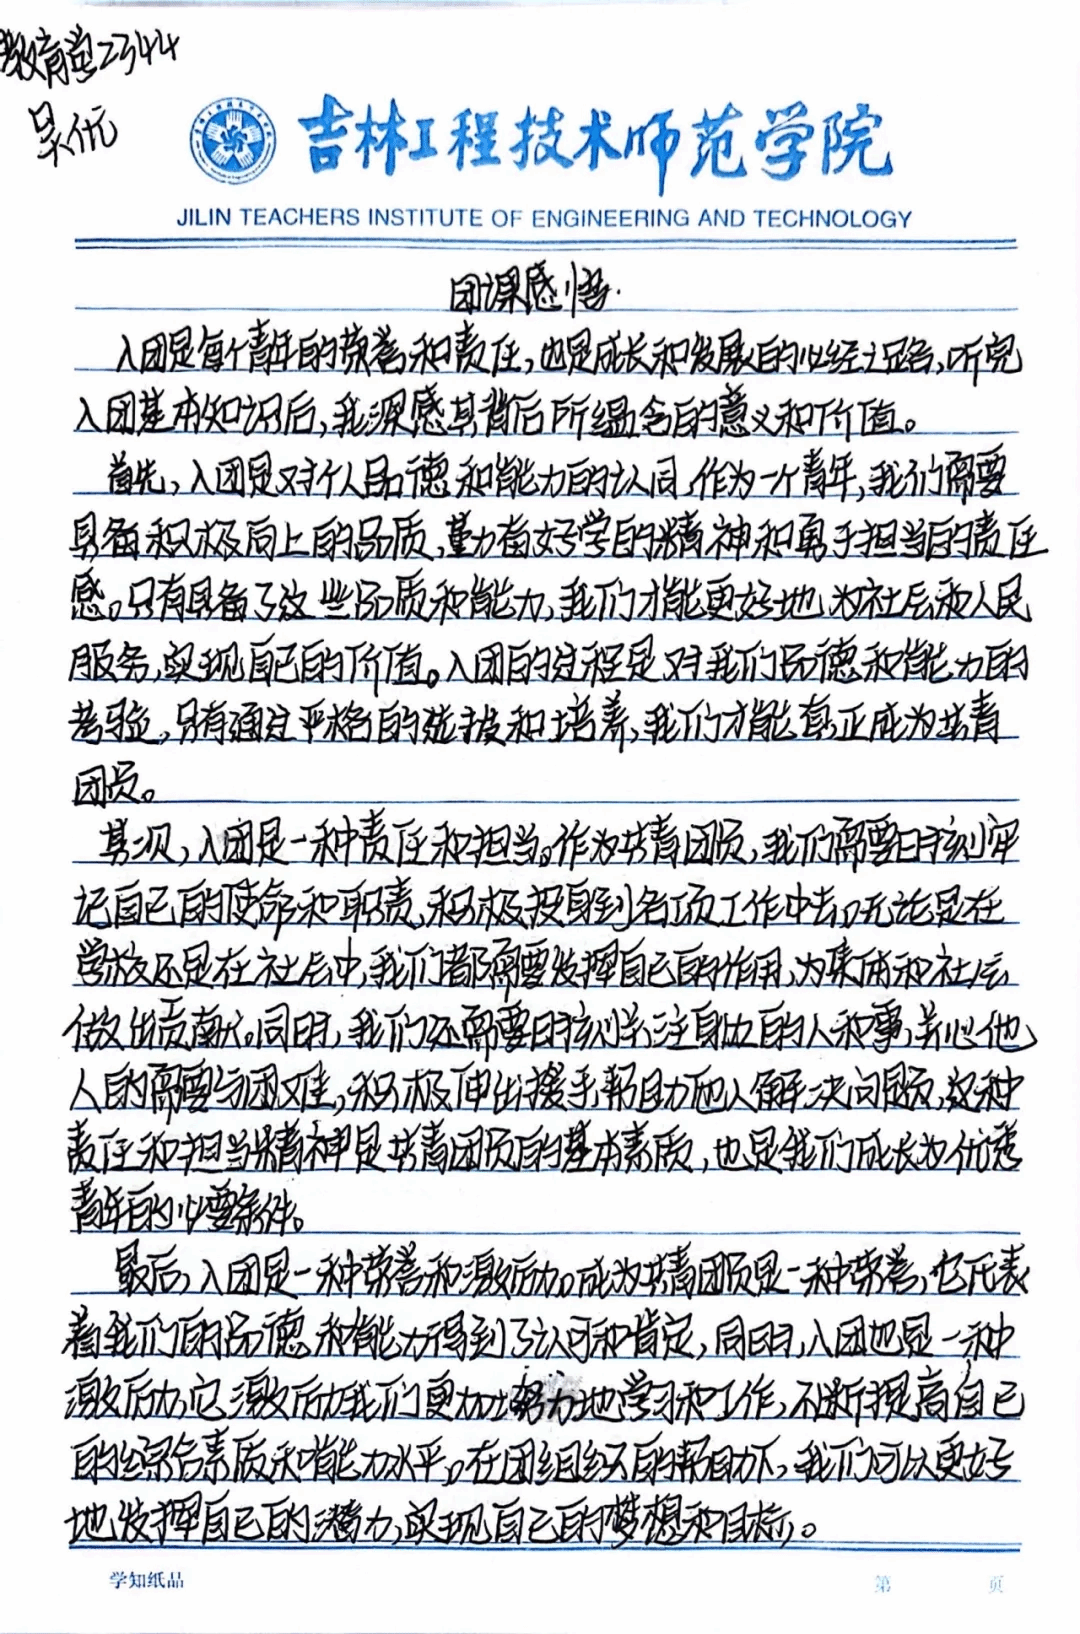 教育学2344
吴优
吉林工程技术师范学院
JILIN TEACHERS INSTITUTE OF ENGINEERING AND TECHNOLOGY
团课感悟.
入团是每个青年的荣誉和责任,也是成长和发展的必经之路,听完
入团基本知识后,我深感其背后所蕴含的意义和价值。
首先,入团是对个人品德和能力的认同,作为一个青年,我们需要
具备积极向上的品质,勤奋好学的精神和勇于担当的责任
感。只有具备了这些品质和能力,我们才能更好地为社会和人民
服务,实现自己的价值。入团的过程是对我们品德和能力的
考验,只有通过严格的选拔和培养,我们才能真正成为共青
团员。
其次,入团是一种责任和担当。作为共青团员,我们需要时刻牢
记自己的使命和职责,积极投身到各项工作中去。无论是在
学校还是在社会中,我们都需要发挥自己的作用,为集体和社会
做出贡献。同时,我们还需要时刻关注身边的人和事,关心他
人的需要与困难,积极伸出援手帮助他人解决问题,这种
责任和担当精神是共青团员的基本素质,也是我们成长为优秀
青年的必要条件。
最后,入团是一种荣誉和激励。成为共青团员是一种荣誉,它代表
着我们的品德和能力得到了认可和肯定,同时,入团也是一种
激励,它激励我们更加努力地学习和工作,不断提高自己
的综合素质和能力水平。在团组织的帮助下,我们可以更好
地发挥自己的潜力,实现自己的梦想和目标。
学知纸品
第 页